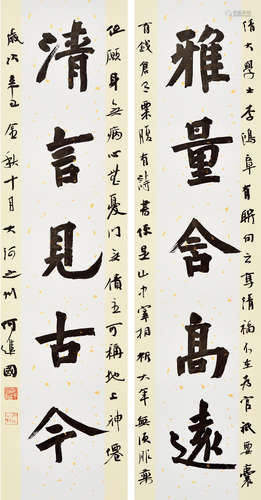 清大學士李鴻章有聯句云享清福不在为官祇要囊
雅量含高遠
有錢倉有粟腹有詩書便是山中宰相祈大年無須服藥
但願身無病心無憂門無債主可稱地上神僊
清言見古今
歲次辛丑金秋十月大河之州何進國